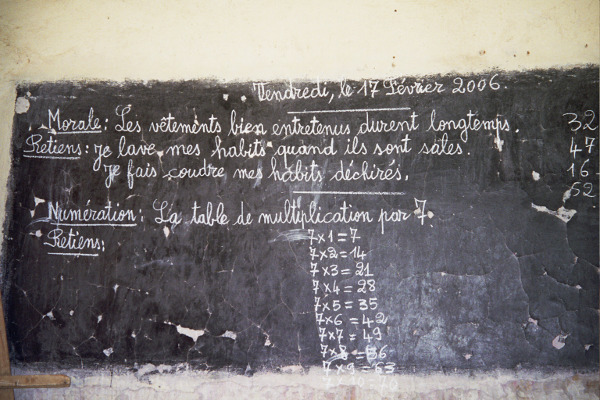 Vendredi, le 17 Février 2006.
Morale: Les vêtements bien entretenus durent longtemps.
Retiens: je lave mes habits quand ils sont sales.
je fais coudre mes habits déchirés.
32
47
16
52
Numération: La table de multiplication par 7.
Retiens:
7x1=7
7x2=14
7x3=21
7x4=28
7x5=35
7x6=42
7x7=49
7x8=56
7x9=63
7x10=70